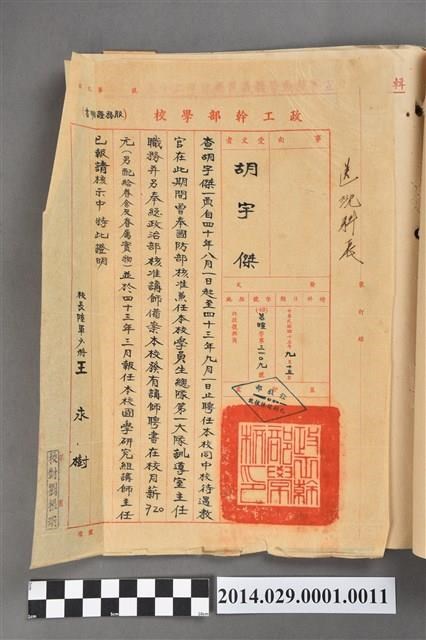 政工幹部學校
(服務證明書)
事由
受文者
胡宇傑
送況科長
中華民國四十五年九月十五日
字第三一〇九號
查胡宇傑一員自四十年八月一日起至四十三年九月一日止聘任本校同中校待遇教
官在此期間曾奉國防部核准兼任本校學員生總隊第一大隊訓導室主任
職務并另奉總政治部核准講師備案本校發有講師聘書在校月薪720
元(另配給眷舍及眷屬實物)並於四十三年三月報任本校國學研究組講師主任
已報請核示中特此證明
校長陸軍少將王永樹
政工幹部學校印
2014.029.0001.0011